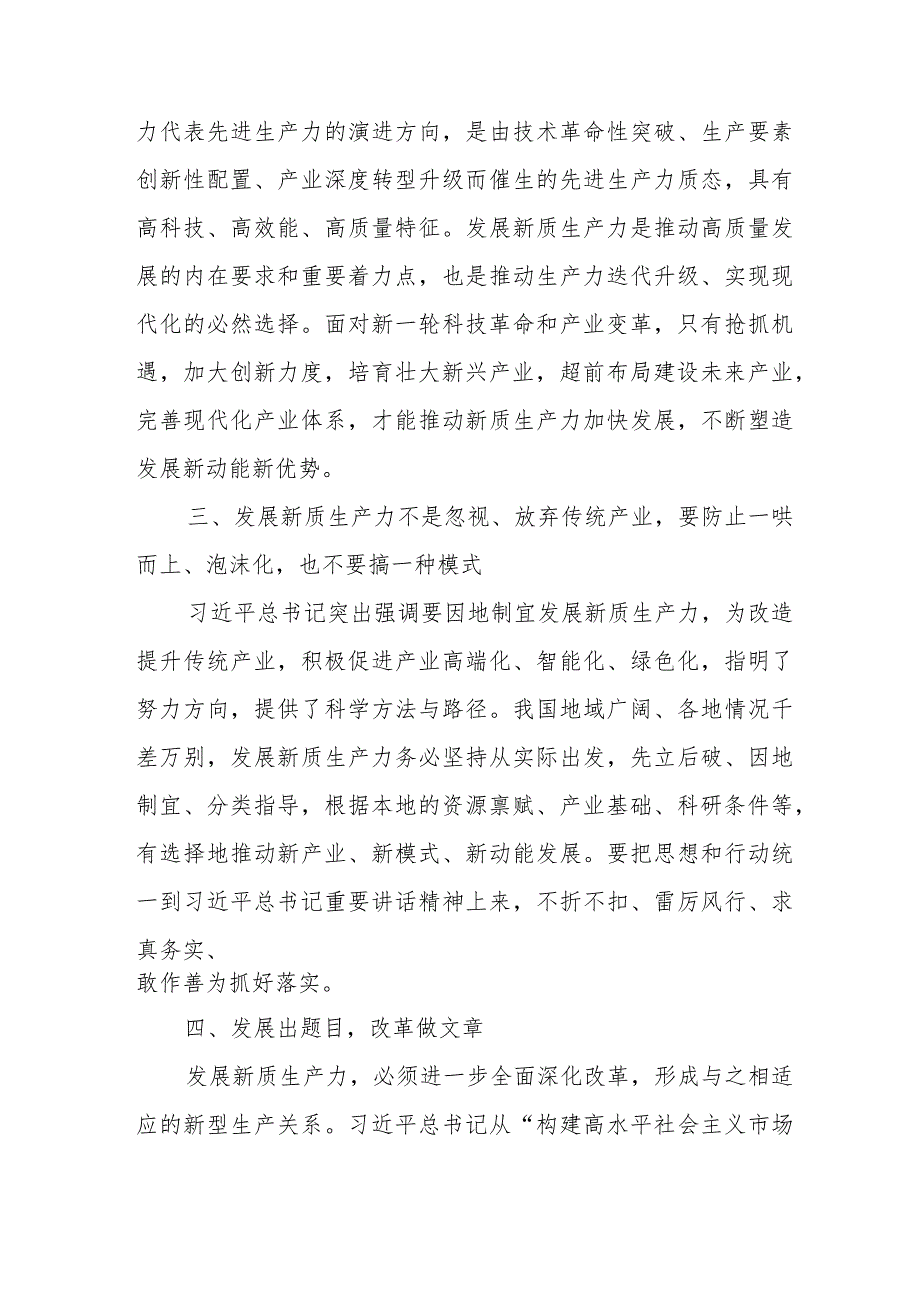 力代表先进生产力的演进方向，是由技术革命性突破、生产要素
创新性配置、产业深度转型升级而催生的先进生产力质态，具有
高科技、高效能、高质量特征。发展新质生产力是推动高质量发
展的内在要求和重要着力点，也是推动生产力迭代升级、实现现
代化的必然选择。面对新一轮科技革命和产业变革，只有抢抓机
遇，加大创新力度，培育壮大新兴产业，超前布局建设未来产业，
完善现代化产业体系，才能推动新质生产力加快发展，不断塑造
发展新动能新优势。
三、发展新质生产力不是忽视、放弃传统产业，要防止一哄
而上、泡沫化，也不要搞一种模式
习近平总书记突出强调要因地制宜发展新质生产力，为改造
提升传统产业，积极促进产业高端化、智能化、绿色化，指明了
努力方向，提供了科学方法与路径。我国地域广阔、各地情况千
差万别，发展新质生产力务必坚持从实际出发，先立后破、因地
制宜、分类指导，根据本地的资源禀赋、产业基础、科研条件等，
有选择地推动新产业、新模式、新动能发展。要把思想和行动统
一到习近平总书记重要讲话精神上来，不折不扣、雷厉风行、求
真务实、
敢作善为抓好落实。
四、发展出题目，改革做文章
发展新质生产力，必须进一步全面深化改革，形成与之相适
应的新型生产关系。习近平总书记从“构建高水平社会主义市场